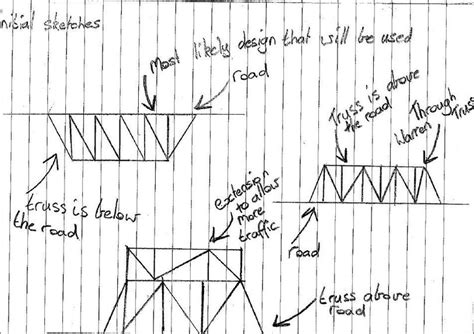 initial sketches
Most likely design that will be used
road
Truss is above
the road
Through
Warren
Truss
truss is below
the road
extension
to allow
more
traffic
road
truss above
road